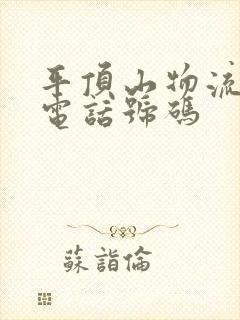 平頂山物流
電話號碼
蘇詣倫